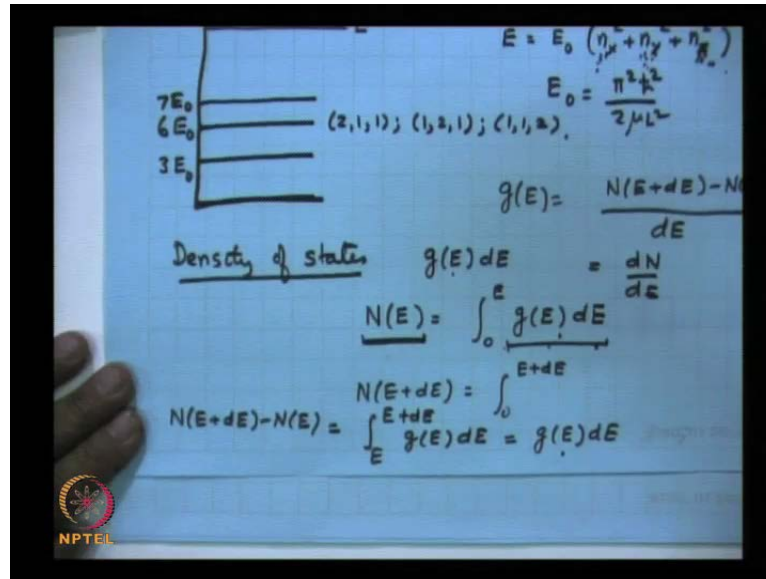 E
E = E₀ (n_x² + n_y² + n_z²)
E₀ = π²ħ² / 2μL²
7E₀
6E₀ (2,1,1); (1,2,1); (1,1,2).
3E₀
g(E) = N(E+dE)-N( / dE
Density of states g(E)dE = dN/dE
N(E) = ∫₀^E g(E) dE
N(E+dE) = ∫₀^{E+dE}
N(E+dE)-N(E) = ∫_E^{E+dE} g(E)dE = g(E)dE
NPTEL